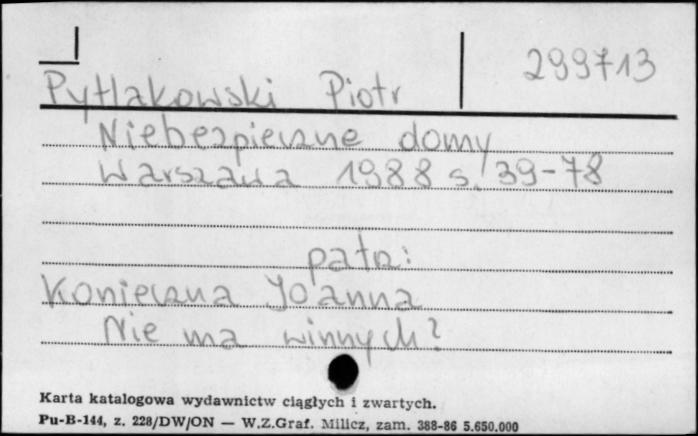 299713
Pytlakowski Piotr
Niebezpieczne domy
Warszawa 1988 s. 39-78
patrz:
Konieczna Joanna
Nie ma winnych?
Karta katalogowa wydawnictw ciągłych i zwartych.
Pu-B-144, z. 228/DW/ON — W.Z.Graf. Milicz, zam. 388-86 5.650.000